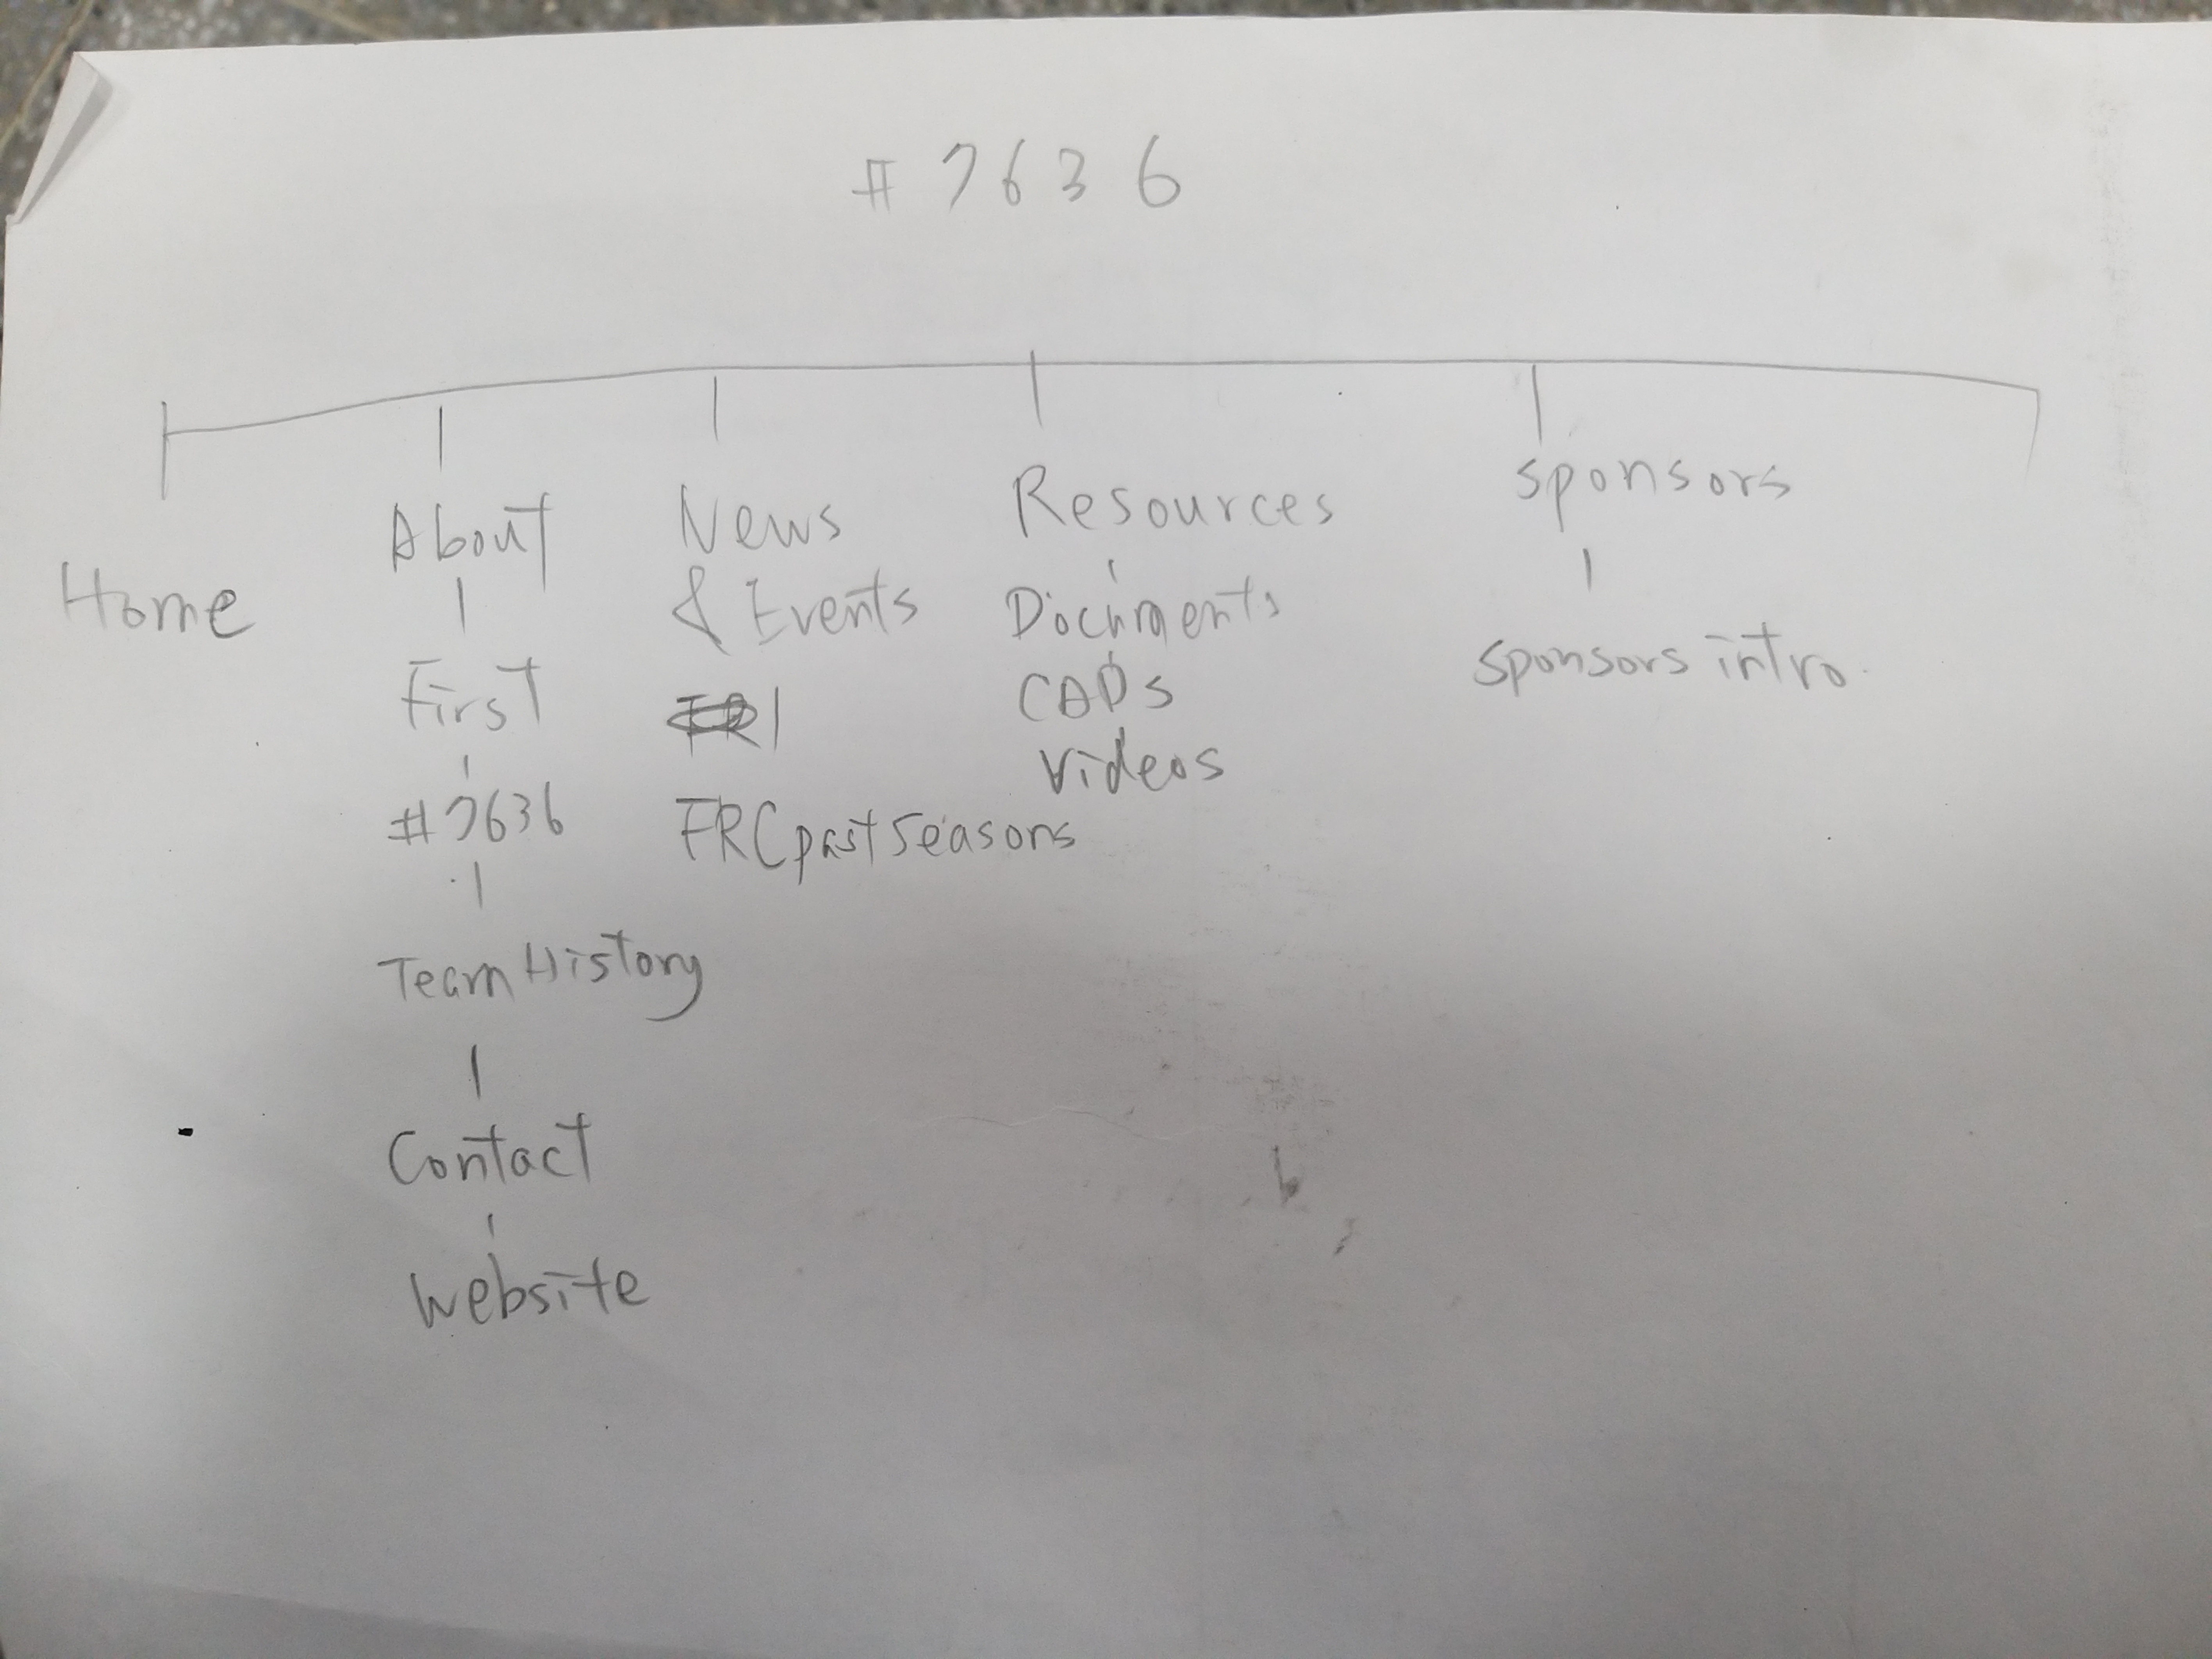 #7636
Home
About
First
#7636
Team History
Contact
Website
News
& Events
FRC past Seasons
Resources
Documents
CADs
Videos
Sponsors
Sponsors intro.